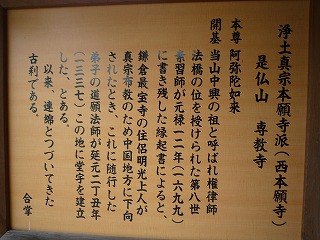 浄土真宗本願寺派(西本願寺)
是仏山 専教寺
本尊 阿弥陀如来
開基 当山中興の祖と呼ばれ権律師
法橋の位を授けられた第八世
秦習師が元禄一二年(一六九九)
に書き残した縁起書によると、
鎌倉最宝寺の住侶明光上人が
真宗布教のため中国地方に下向
されたとき、これに随行した
弟子の道願法師が延元二丁丑年
(一三三七)この地に堂宇を建立
した、とある。
以来、連綿とつづいてきた
古刹である。
合掌